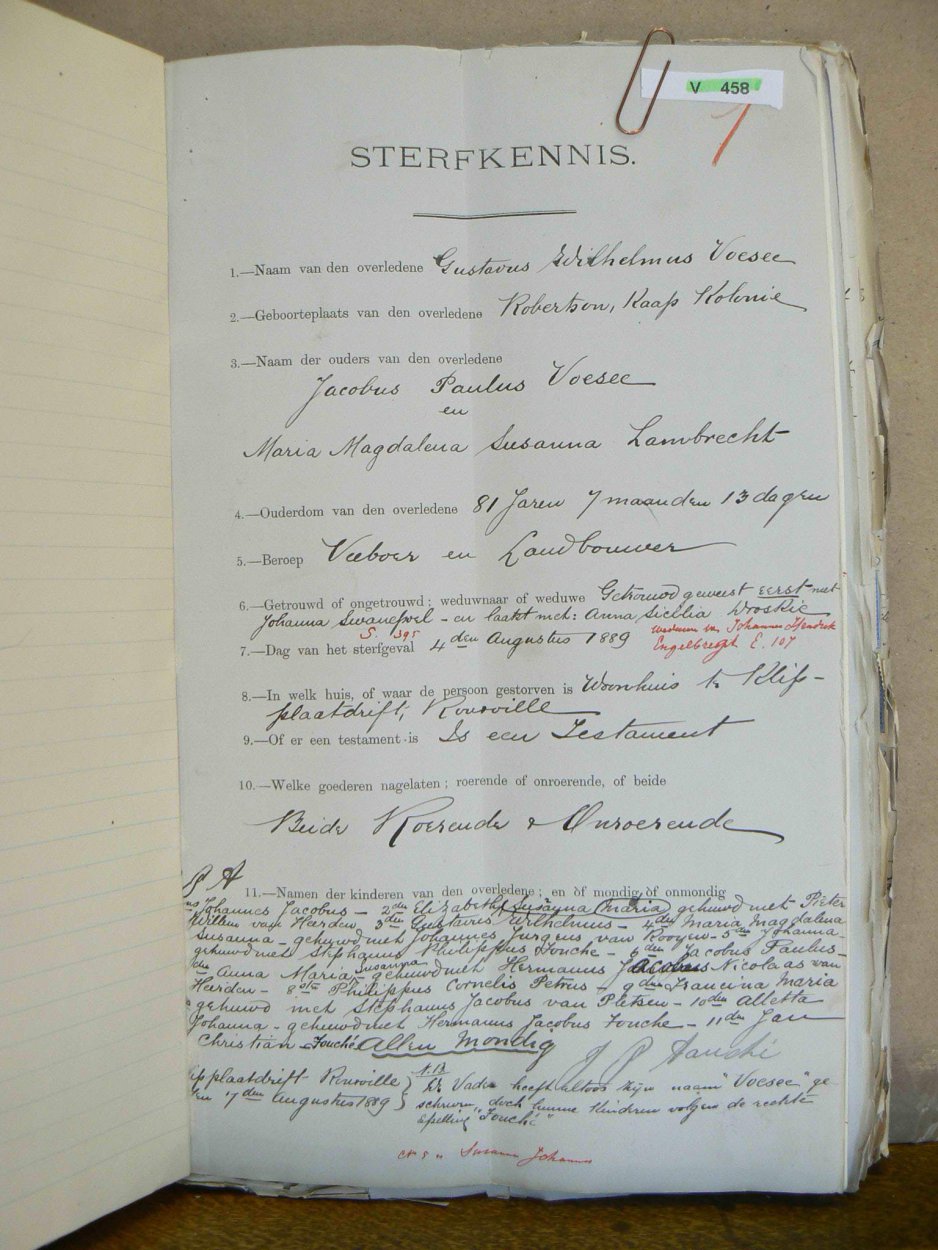 V 458
STERFKENNIS.
1.—Naam van den overledene Gustavus Wilhelmus Voesee
2.—Geboorteplaats van den overledene Robertson, Kaap Kolonie
3.—Naam der ouders van den overledene
Jacobus Paulus Voesee
en
Maria Magdalena Susanna Lambrecht
4.—Ouderdom van den overledene 81 Jaren 7 maanden 13 dagen
5.—Beroep Veeboer en Landbouwer
6.—Getrouwd of ongetrouwd; weduwnaar of weduwe Getrouwd geweest eerst met
Johanna Swanepoel – en laatst met: Anna Sicilia
S. 395 weduwe van Johannes Hendrik
7.—Dag van het sterfgeval 4den Augustus 1889 Engelbrecht E. 107
8.—In welk huis, of waar de persoon gestorven is Woonhuis te Klip-
plaatdrift, Rouxville
9.—Of er een testament is Is een Testament
10.—Welke goederen nagelaten; roerende of onroerende, of beide
Beide Roerende & Onroerende
11.—Namen der kinderen van den overledene; en òf mondig òf onmondig
Johannes Jacobus – 2den Elizabeth Susanna Maria gehuwd met Pieter
Willem van Heerden 3den Gustavus Wilhelmus – 4den Maria Magdalena
Susanna – gehuwd met Johannes Jurgens van Rooyen – 5den Johanna
gehuwd met Stephanus Philippus Fouche – 6den Jacobus Paulus –
Anna Maria Susanna gehuwd met Hermanus Jacobus Nicolaas van
Heerden – 8ste Philippus Cornelis Petrus – 9den Francina Maria
gehuwd met Stephanus Jacobus van Pletsen – 10den Alletta
Johanna – gehuwd met Hermanus Jacobus Fouche – 11den Jan
Christian Fouché Allen Mondig
Klipplaatdrift Rouxville
17den Augustus 1889
N.B.
De Vader heeft altoos zijn naam "Voesee" ge-
schreven doch hunne Kinderen volgen de rechte
spelling "Fouché"